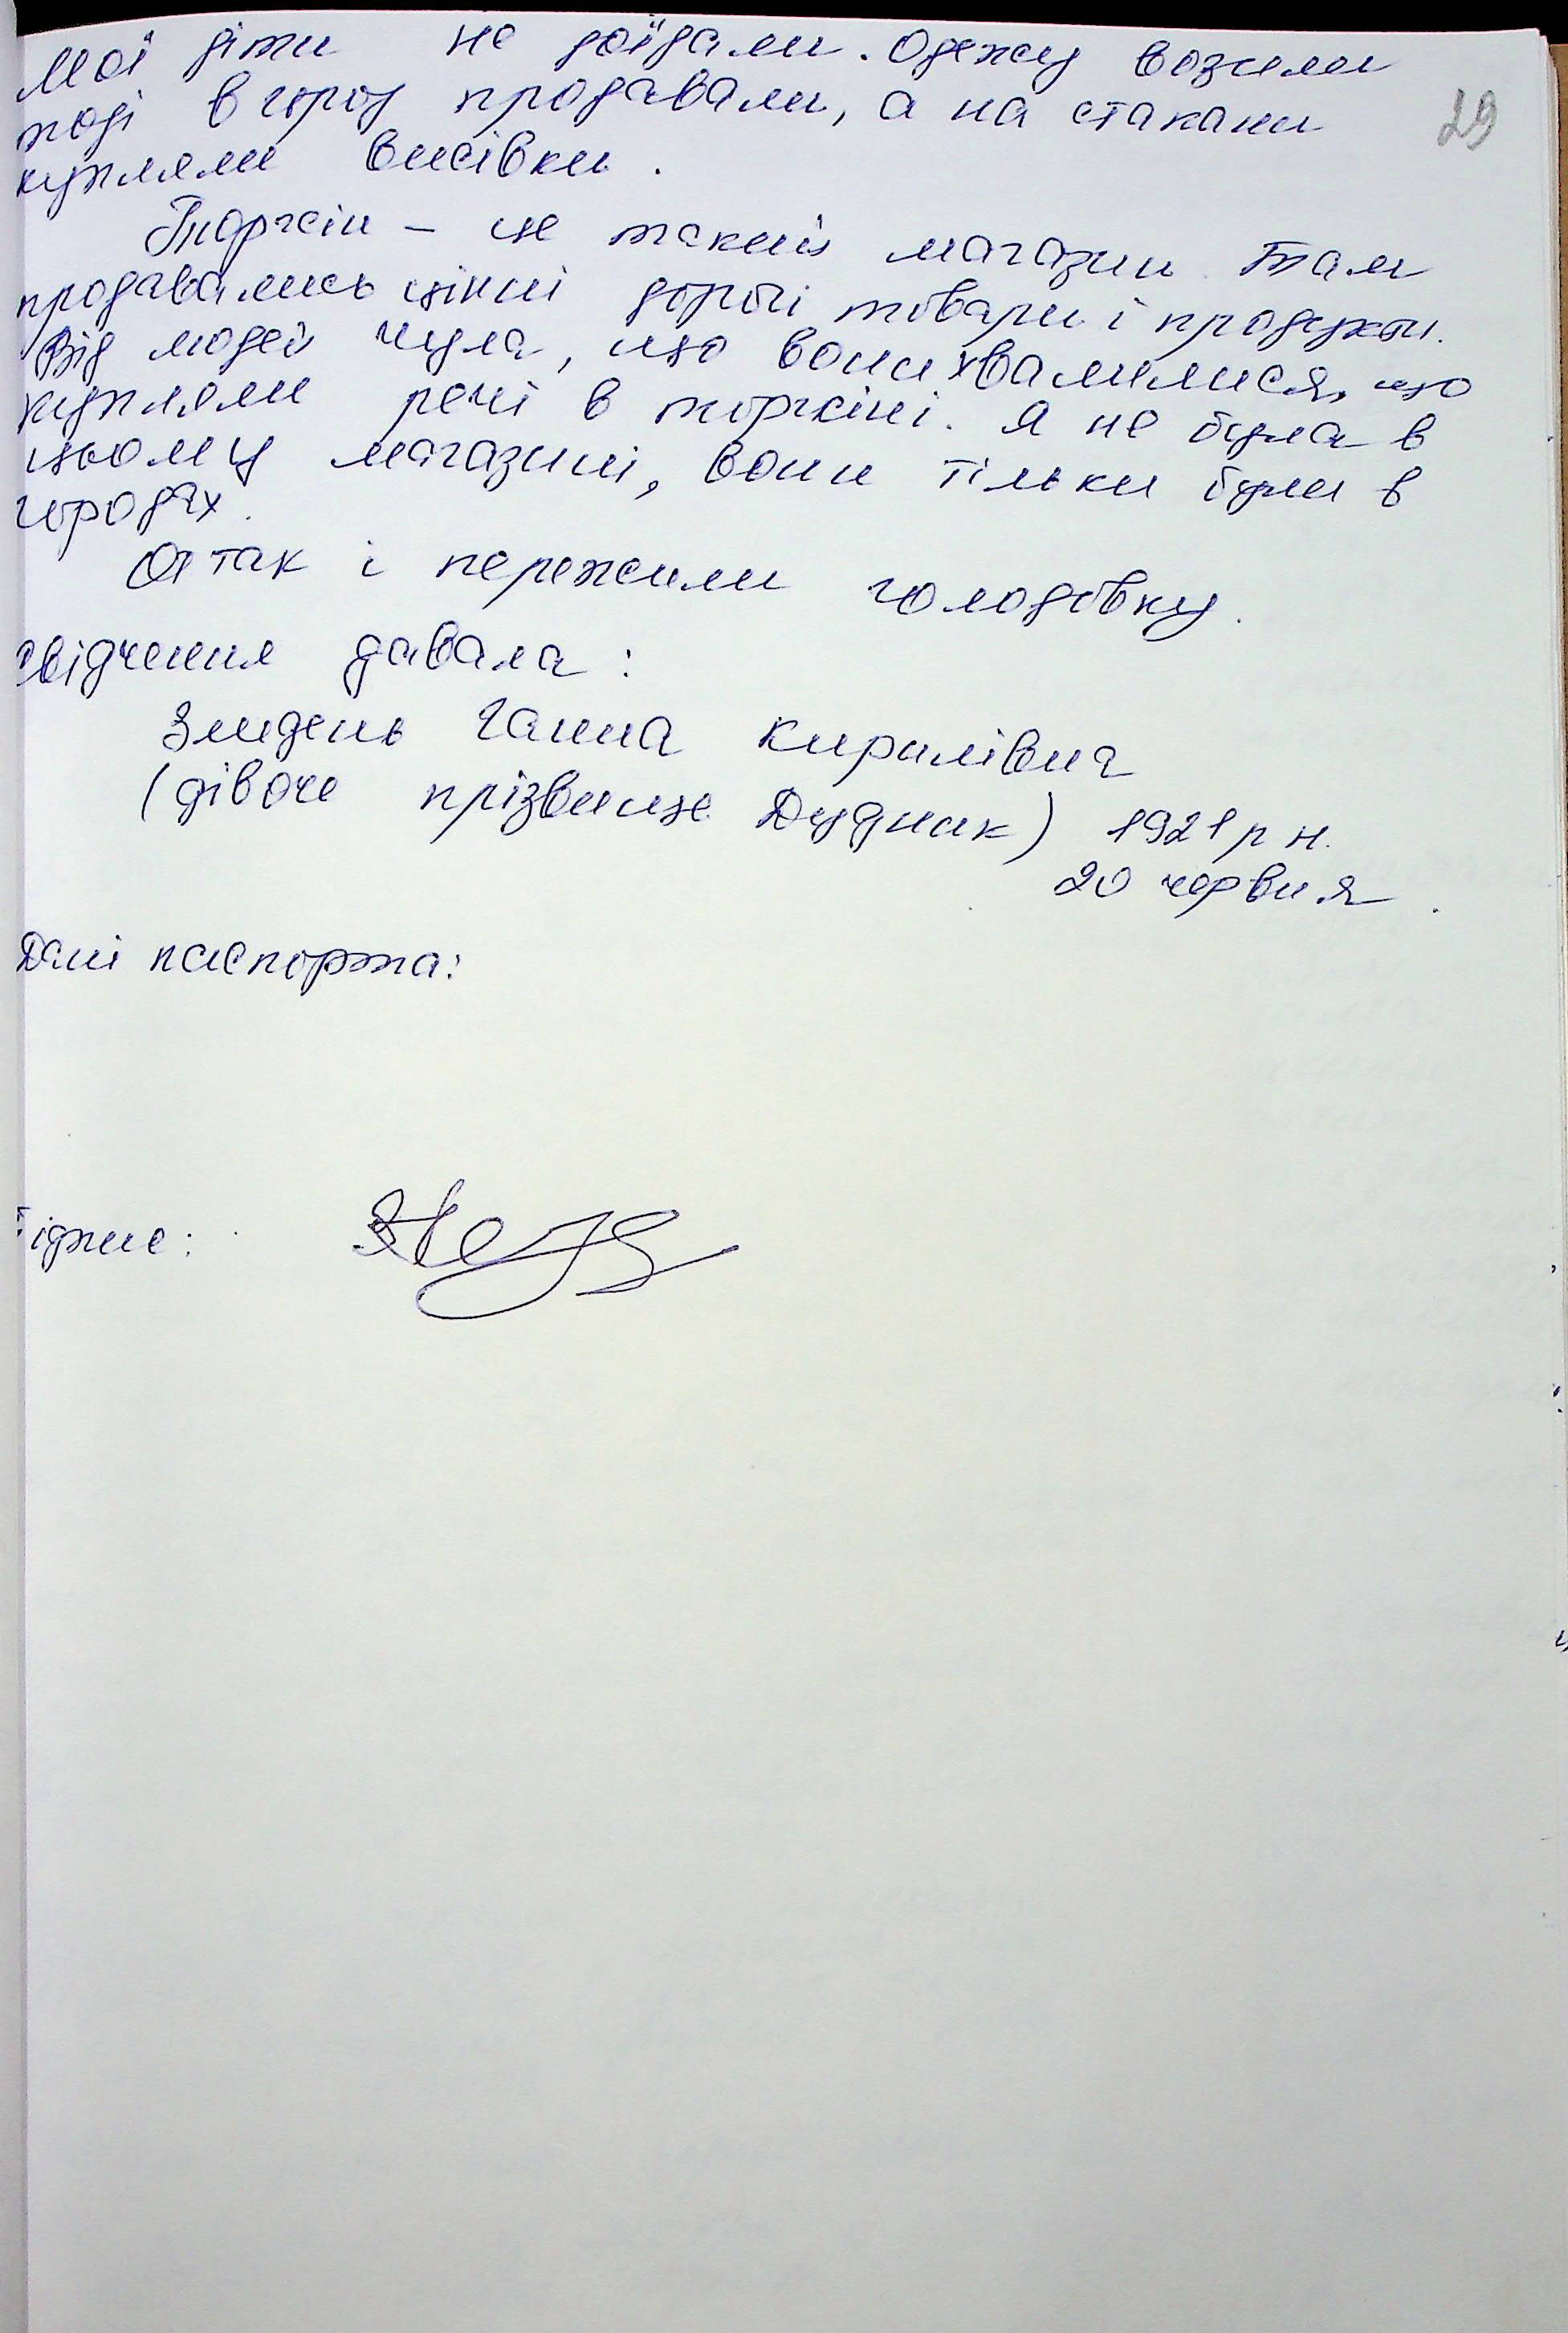 Мої діти не доїдали. Одежу возили
тоді в город продавали, а на стакани
купляли висівки.
29
Торгсін – це такий магазин. Там
продавались цінні дорогі товари і продукти.
Від людей чула, що вони хвалилися, що
купляли речі в торгсіні. Я не була в
цьому магазині, вони тільки були в
городах.
Отак і пережили голодовку.
Свідчення давала:
Змидень Ганна Кирилівна
(дівоче прізвище Дудник) 1921 р н.
20 червня.
Дані паспорта:
Підпис: